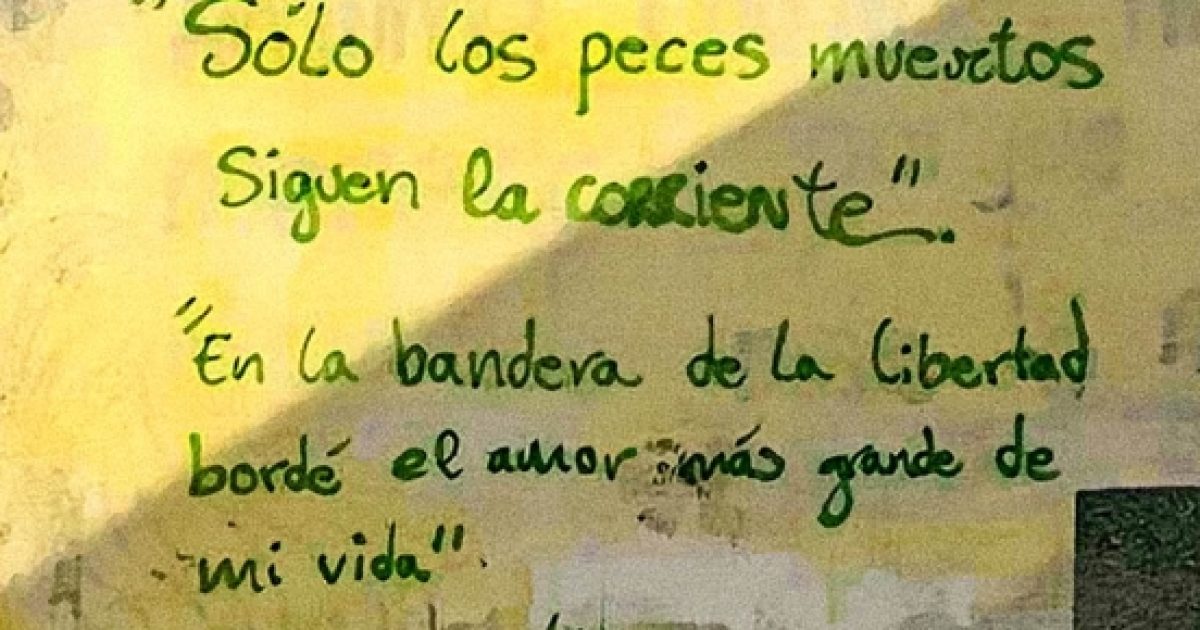 "Sólo los peces muertos
siguen la corriente".
"En la bandera de la libertad
bordé el amor más grande de
mi vida".